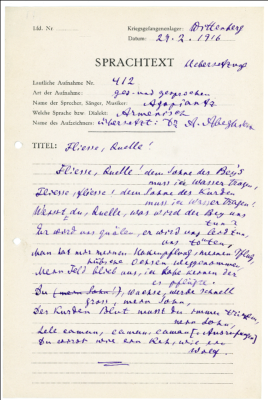 Lfd. Nr.
Kriegsgefangenenlager: Wittenberg
Datum: 29.2.1916
SPRACHTEXT Uebersetzung
Lautliche Aufnahme Nr. 412
Art der Aufnahme: ges. und gesprochen
Name der Sprecher, Sänger, Musiker: Agopiantz
Welche Sprache bzw. Dialekt: Armenisch
Name des Aufzeichners: übersetzt: Dr A. Abeghian
TITEL: Fliesse, Quelle!
Fliesse, Quelle! dem Sohne des Bey's
muss ich Wasser tragen,
Fliesse, fliesse! dem Sohne des Kurden
muss ich Wasser tragen!
Weisst du, Quelle, was wird der Bey uns
tun?
Er wird uns quälen, er wird uns
uns töten,
Man hat mir meinen Hakenpflug, meinen Pflug,
Ochsen weggenommen,
Mein Feld blieb aus, ich habe keinen der
es pflüge.
Du (mein Sohn!), wachse, werde schnell
gross, mein Sohn,
Des Kurden Blut musst du immer trinken,
mein Sohn,
caman, caman
Du wirst wie ein Reh, wie ein
Wolf